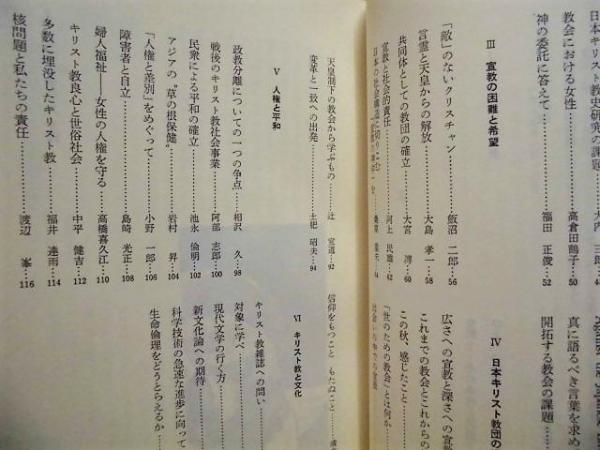 日本キリスト教史研究の課題……大内 三郎…
教会における女性……高倉田鶴子…50
神の委託に答えて……福田 正俊…52
Ⅲ 宣教の困難と希望
「敵」のないクリスチャン……飯沼 二郎…56
言霊と天皇からの解放……大島 孝一…58
共同体としての教団の確立……大宮 溥…60
宣教と社会的責任……河上 民雄…62
日本の社会構造に切りこむ
真に語るべき言葉を求め
開拓する教会の課題……
Ⅳ 日本キリスト教団の
広さへの宣教と深さへの宣教
これまでの教会とこれからの
この秋、感じたこと……
「世のための教会」とは何か
天皇制下の教会から学ぶもの……辻 宣道…92
変革と一致への出発……土肥 昭夫…94
Ⅴ 人権と平和
政教分離についての一つの争点……相沢 久…98
戦後のキリスト教社会事業……阿部 志郎…100
民衆による平和の確立……池永 倫明…102
アジアの〝草の根保健〟……岩村 昇…104
「人権と差別」をめぐって……小野 一郎…106
障害者と自立……島崎 光正…108
婦人福祉――女性の人権を守る……高橋喜久江…110
キリスト教良心と世俗社会……中平 健吉…112
多数に埋没したキリスト教……福井 達雨…114
核問題と私たちの責任……渡辺 峯…116
信仰をもつこと もたぬこと……
Ⅵ キリスト教と文化
キリスト教雑誌への問い……
対象に学べ……
現代文学の行く方……
新文化論への期待……
科学技術の急速な進歩に向って
生命倫理をどうとらえるか……